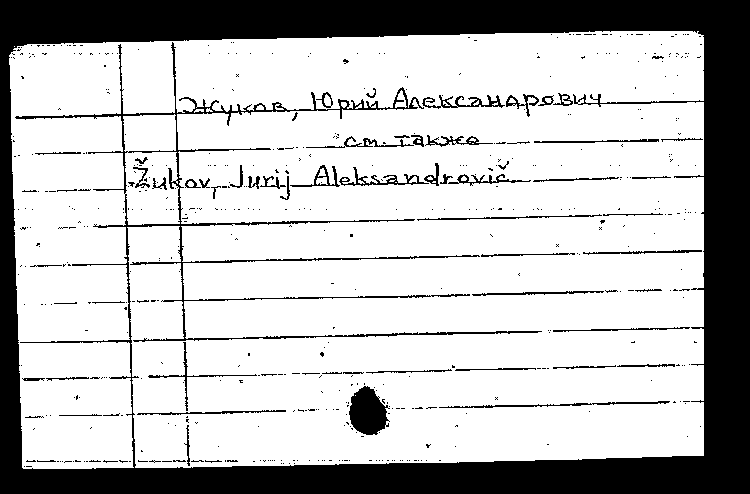 Жуков, Юрий Александрович
см. также
Žukov, Jurij Aleksandrovič